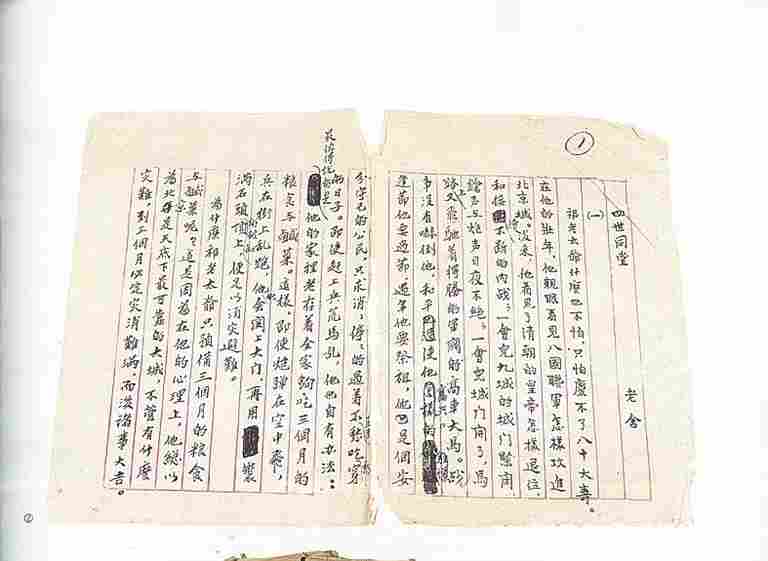 ①
四世同堂
老舍
(一)
祁老太爺什麼也不怕,只怕慶不了八十大壽。
在他的壯年,他親眼看見八國聯軍怎樣攻進
北京城。後來,他看見了清朝的皇帝怎樣退位,
和接 不斷的內戰;一會兒九城的城門緊閉,
鎗聲與炮声日夜不絕;一會兒城門開了,馬
路又飛馳着得勝的軍閥的高車大馬。戰
爭沒有嚇倒他,和平 使他
逢節他要過節,過年他要祭祖,他 是個安
分守己的公民,只求消消停停的過着不愁吃穿
的日子。即使趕上兵荒馬亂,他也自有办法:
最值得 的是
他的家裡老存着全家夠吃三個月的
粮食与鹹菜。這樣,即使炮弹在空中飛,
兵在街上乱跑,他會関上大門,再用 裝
滿石頭 頂上,便足以消災避難。
為什麼祁老太爺只預備三個月的粮食
与鹹菜呢?這是因為在他的心理上,他總以
為北平是天底下最可靠的大城,不管有什麼
災難,到三個月必定災消難滿,而後諸事大吉。
②